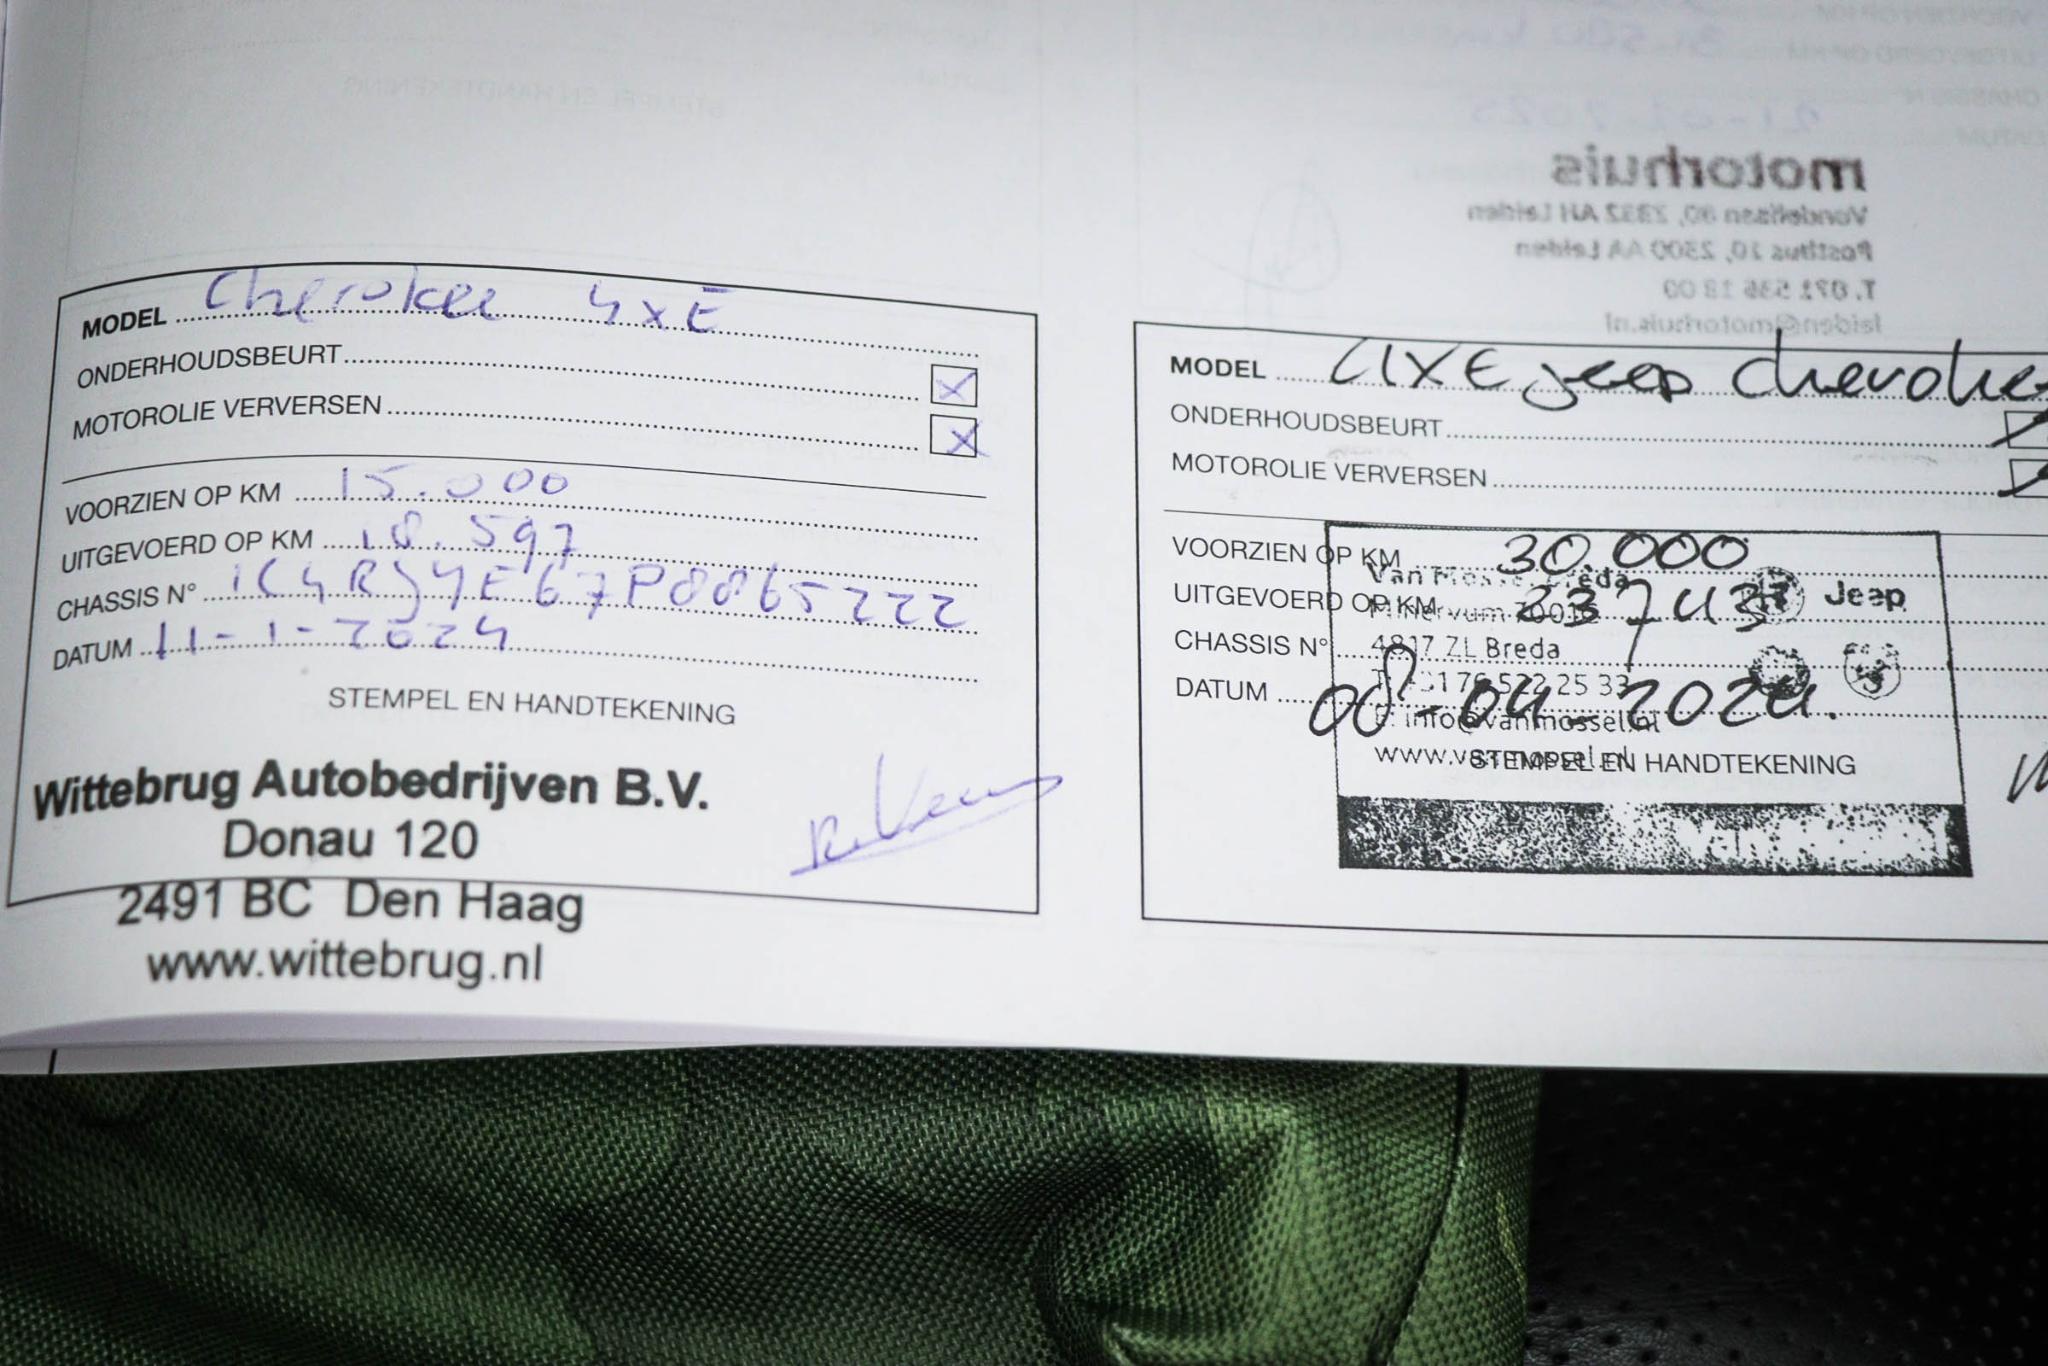 MODEL Cherokee 4xE
ONDERHOUDSBEURT
MOTOROLIE VERVERSEN
VOORZIEN OP KM 15.000
UITGEVOERD OP KM 18.597
CHASSIS N° 1C4RJYE67P8865222
DATUM 11-1-2024
STEMPEL EN HANDTEKENING
Wittebrug Autobedrijven B.V.
Donau 120
2491 BC Den Haag
www.wittebrug.nl
motorhuis
Vondellaan 80, 2332 AH Leiden
Postbus 10, 2300 AA Leiden
T. 071 536 18 00
leiden@motorhuis.nl
MODEL 4XE jeep cherokee
ONDERHOUDSBEURT
MOTOROLIE VERVERSEN
VOORZIEN OP KM 30.000
UITGEVOERD OP KM
CHASSIS N°
DATUM 08-04-2024.
STEMPEL EN HANDTEKENING
Van Mossel Breda
Jeep
4817 ZL Breda
info@vanmossel.nl
www.vanmossel.nl